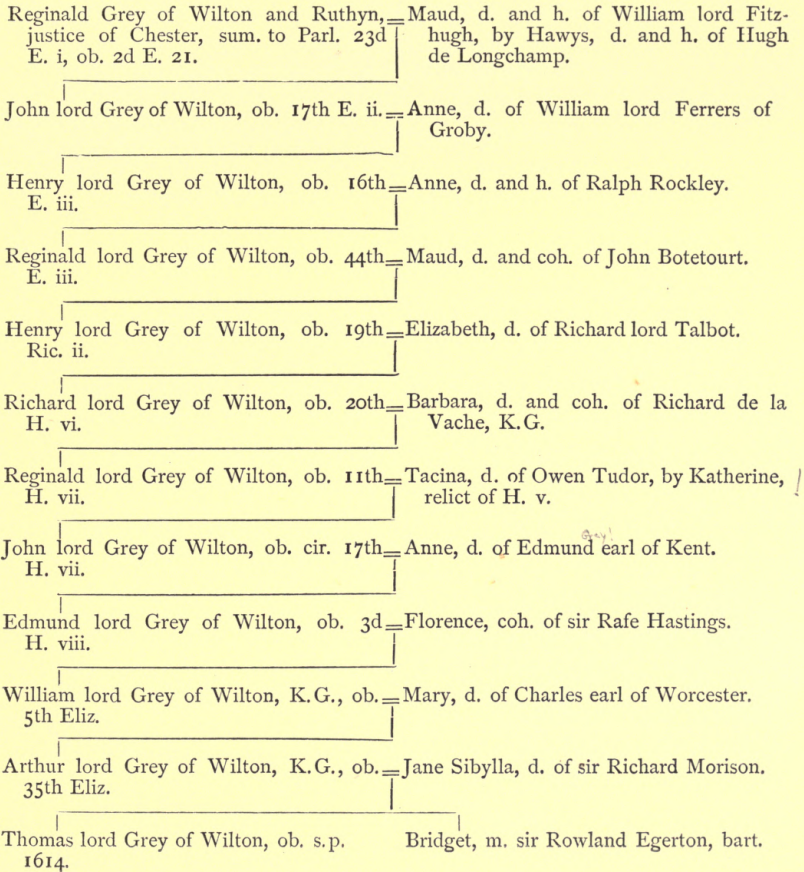 Reginald Grey of Wilton and Ruthyn, = Maud, d. and h. of William lord Fitz-
justice of Chester, sum. to Parl. 23d hugh, by Hawys, d. and h. of Hugh
E. i, ob. 2d E. 21. de Longchamp.
John lord Grey of Wilton, ob. 17th E. ii. = Anne, d. of William lord Ferrers of
Groby.
Henry lord Grey of Wilton, ob. 16th = Anne, d. and h. of Ralph Rockley.
E. iii.
Reginald lord Grey of Wilton, ob. 44th = Maud, d. and coh. of John Botetourt.
E. iii.
Henry lord Grey of Wilton, ob. 19th = Elizabeth, d. of Richard lord Talbot.
Ric. ii.
Richard lord Grey of Wilton, ob. 20th = Barbara, d. and coh. of Richard de la
H. vi. Vache, K.G.
Reginald lord Grey of Wilton, ob. 11th = Tacina, d. of Owen Tudor, by Katherine,
H. vii. relict of H. v.
John lord Grey of Wilton, ob. cir. 17th = Anne, d. of Edmund earl of Kent.
H. vii.
Edmund lord Grey of Wilton, ob. 3d = Florence, coh. of sir Rafe Hastings.
H. viii.
William lord Grey of Wilton, K.G., ob. = Mary, d. of Charles earl of Worcester.
5th Eliz.
Arthur lord Grey of Wilton, K.G., ob. = Jane Sibylla, d. of sir Richard Morison.
35th Eliz.
Thomas lord Grey of Wilton, ob. s.p. Bridget, m. sir Rowland Egerton, bart.
1614.